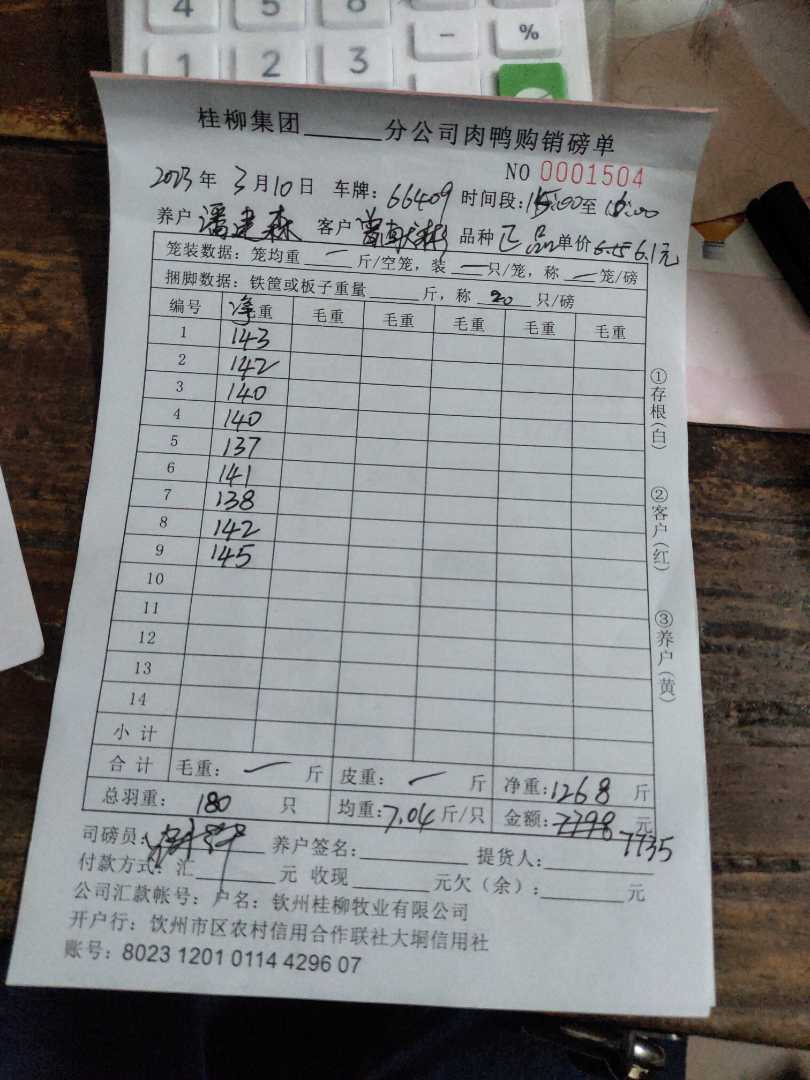 4 5 6 −
1 2 3 %
桂柳集团______分公司肉鸭购销磅单
NO 0001504
2023年 3月10日 车牌: 66409 时间段: 15:00至 16:00
养户 潘建森 客户 曾献彬 品种 正品 单价 6.15 6.1元
笼装数据: 笼均重 一 斤/空笼, 装 一 只/笼, 称 一 笼/磅
捆脚数据: 铁筐或板子重量______斤, 称 20 只/磅
编号 净毛重 毛重 毛重 毛重 毛重 毛重
1 143
2 142
3 140
4 140
5 137
6 141
7 138
8 142
9 145
10
11
12
13
14
小计
合计 毛重: 一 斤 皮重: 一 斤 净重: 1268 斤
总羽重: 180 只 均重: 7.04 斤/只 金额: 7798 元 7735
司磅员: 养户签名:__________ 提货人:__________
付款方式: 汇________元 收现________元欠(余):________元
公司汇款帐号: 户名: 钦州桂柳牧业有限公司
开户行: 饮州市区农村信用合作联社大垌信用社
账号: 8023 1201 0114 4296 07
①存根(白)
②客户(红)
③养户(黄)